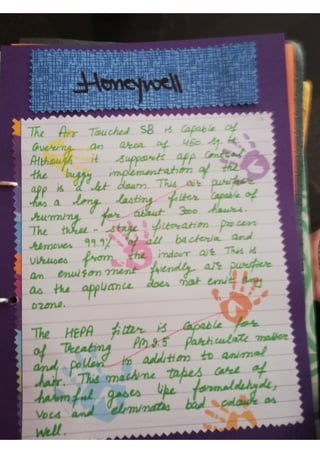 Honeywell
The Air Touched S8 is capable of
covering an area of 450 sq.ft.
Although it supports app control
the buggy implementation of the
app is a let down. This air purifier
has a long lasting filter capable of
running for about 3000 hours.
The three-stage filteration process
removes 99.9% of all bacteria and
viruses from the indoor air. This is
an environment friendly air purifier
as the appliance does not emit any
ozone.
The HEPA filter is capable for
of treating PM 2.5 particulate matter
and pollen in addition to animal
hair. This machine tapes care of
harmful gases like formaldehyde,
VOCs and eliminates bad odours as
well.